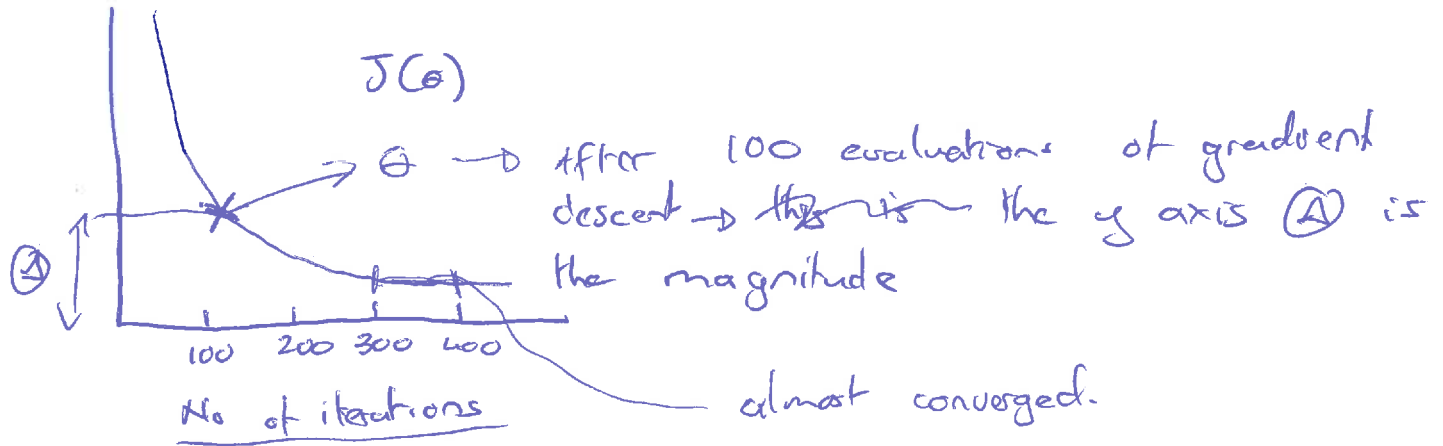 J(θ)
θ → After 100 evaluations of gradient
descent → this is the y axis Ⓐ is
Ⓐ
the magnitude
100 200 300 400
No of iterations
almost converged.